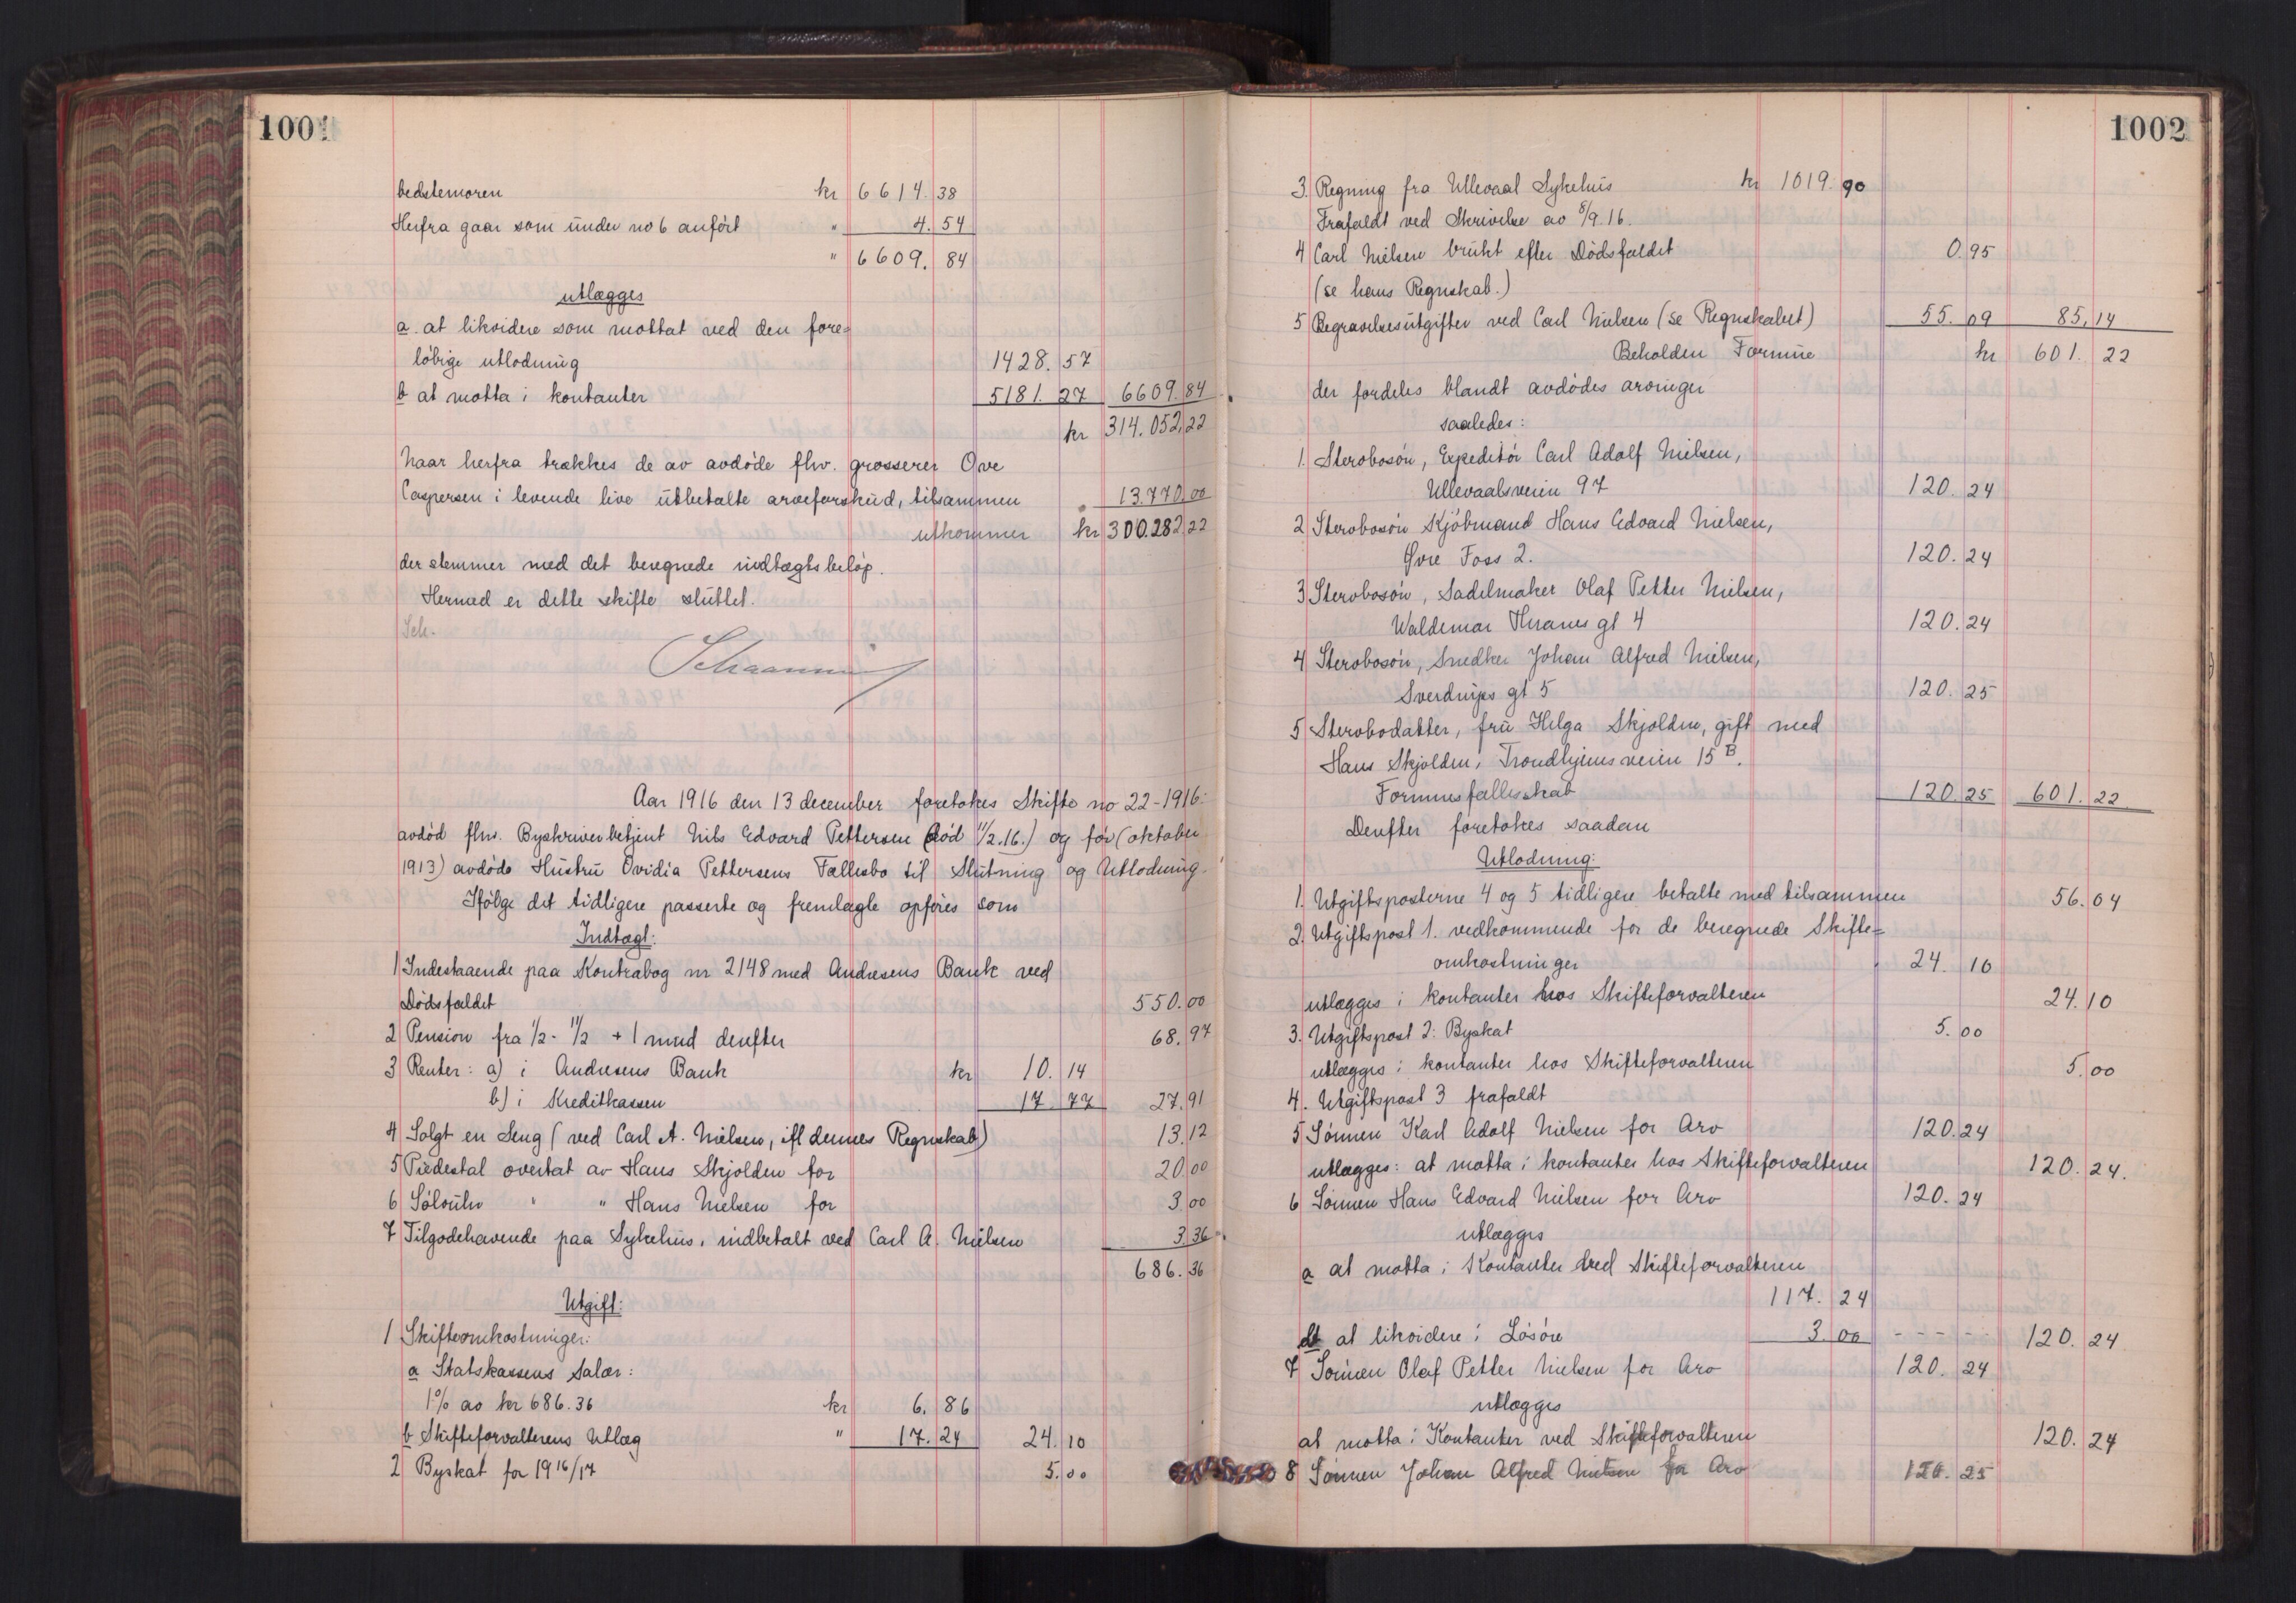 1001
bedstemoren kr 6614.38
Herfra gaar som under no 6 anført " 4.54
" 6609.84
utlægges
a. at likvidere som mottat ved den fore=
løbige utlodning 1428.57
b at motta i kontanter 5181.27 6609.84
kr 314.052,22
Naar herfra trækkes de av avdøde fhv. grosserer Ove
Caspersen i levende live utbetalte arveforskud, tilsammen " 13.770,00
utkommer kr 300.282,22
der stemmer med det beregnede indtægtsbeløp.
Hermed er dette skifte sluttet.
Sch.
Schaanning
Aar 1916 den 13 december foretokes Skifte no 22-1916:
avdød fhv. Byskriverbetjent Nils Edvard Pettersen (død 11/2.16.) og før (oktober
1913) avdøde Hustru Ovidia Pettersens Fællesbo til Slutning og Utlodning.
Ifølge det tidligere passerte og fremlagte opføres som
Indtægt:
1 Indestaaende paa Kontrabog nr 2148 med Andresens Bank ved
Dødsfaldet 550.00
2 Pension fra 1/2 - 11/2 + 1 mnd derefter 68.97
3 Renter: a) i Andresens Bank kr 10.14
b) i Kreditkassen 17.77 27.91
4 Solgt en Seng (ved Carl A. Nielsen, ifl dennes Regnskab) 13.12
5 Piedestal overtat av Hans Skjolden for 20.00
6 Sølvuhr " " Hans Nielsen for 3.00
7 Tilgodehavende paa Sykehus, indbetalt ved Carl A. Nielsen 3.36
686.36
Utgift:
1 Skifteomkostninger:
a Statskassens Salær:
1% av kr 686.36 kr 6.86
b Skifteforvalterens Utlæg " 17.24 24.10
2 Byskat for 1916/17 5.00
1002
3. Regning fra Ullevaal Sykehus kr 1019.90
Frafaldt ved Skrivelse av 8/9.16.
4 Carl Nielsen brukt efter Dødsfaldet 0.95
(se hans Regnskab.)
5 Begravelsesutgifter ved Carl Nielsen (se Regnskabet) 55.09 85.14
Beholden Formue kr 601.22
der fordeles blandt avdødes arvinger
saaledes:
1. Stervbosøn, Expeditør Carl Adolf Nielsen,
Ullevaalsveien 97 120.24
2 Stervbosøn Kjøbmand Hans Edvard Nielsen,
Øvre Foss 2. 120.24
3 Stervbosøn, Sadelmaker Olaf Petter Nielsen,
Waldemar Thranes gt 4 120.24
4 Stervbosøn, Snedker Johan Alfred Nielsen,
Sverdrups gt 5 120.25
5 Stervbodatter, fru Helga Skjolden, gift med
Hans Skjolden, Trondhjemsveien 15 B.
Formuesfællesskab 120.25 601.22
Derefter foretokes saadan
Utlodning:
1. Utgiftsposterne 4 og 5 tidligere betalte med tilsammen 56.04
2. Utgiftspost 1. vedkommende for de beregnede Skifte=
omkostninger 24.10
utlægges i kontanter hos Skifteforvalteren 24.10
3. Utgiftspost 2: Byskat 5.00
utlægges i kontanter hos Skifteforvalteren 5.00
4. Utgiftspost 3 frafaldt
5 Sønnen Karl Adolf Nielsen for Arv 120.24
utlægges: at motta i kontanter hos Skifteforvalteren 120.24.
6 Sønnen Hans Edvard Nielsen for Arv 120.24
utlægges
a at motta i Kontanter ved Skifteforvalteren
117.24
b at likvidere i Løsøre 3.00 - - - - 120.24
7 Sønnen Olaf Petter Nielsen for Arv 120.24
utlægges
at motta i Kontanter ved Skifteforvalteren 120.24
8 Sønnen Johan Alfred Nielsen for Arv 120.25